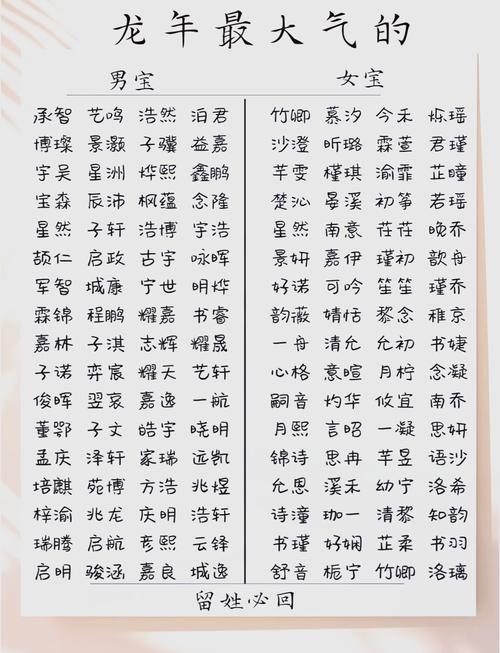 龙年最大气的
男宝 女宝
承智 艺鸣 浩然 泊君 竹卿 慕汐 今禾 烁瑶
博璨 景灏 子骥 益嘉 沙澄 昕璐 霖萱 君瑾
宇吴 星洲 烨熙 鑫鹏 芊雯 槿琪 渝霏 芷瞳
宝森 辰沛 枫蕴 念隆 楚沁 晏溪 初筝 若瑶
星然 子轩 浩博 宇浩 星然 南意 茌茌 晚乔
颉仁 启政 古宇 咏晖 景妍 嘉伊 瑾初 歆舟
军智 城康 宁世 明烨 好诺 可吟 笙笙 瑾乔
霖锦 程鹏 耀嘉 书睿 韵薇 婧恬 黎念 稚京
嘉林 子淇 志辉 耀晟 一舟 清允 允初 书婕
子诺 弈宸 耀天 艺轩 心格 意暄 月柠 念凝
俊晖 翌哀 嘉逸 一航 嗣音 灼华 攸宜 南乔
董鄂 子文 皓宇 晓明 月熙 言昭 一凝 思妍
孟庆 泽轩 家瑞 远凯 锦诗 思冉 芊昱 语沙
培麒 苑博 方浩 兆煜 允恩 溪禾 幼宁 洛希
梓渝 兆龙 庆明 浩轩 诗潼 珈一 清黎 知韵
瑞腾 启航 彦熙 云锋 书瑾 好娴 芷柔 书羽
启明 骏涵 嘉良 城逸 舒音 栀宁 竹卿 洛璃
留姓必回